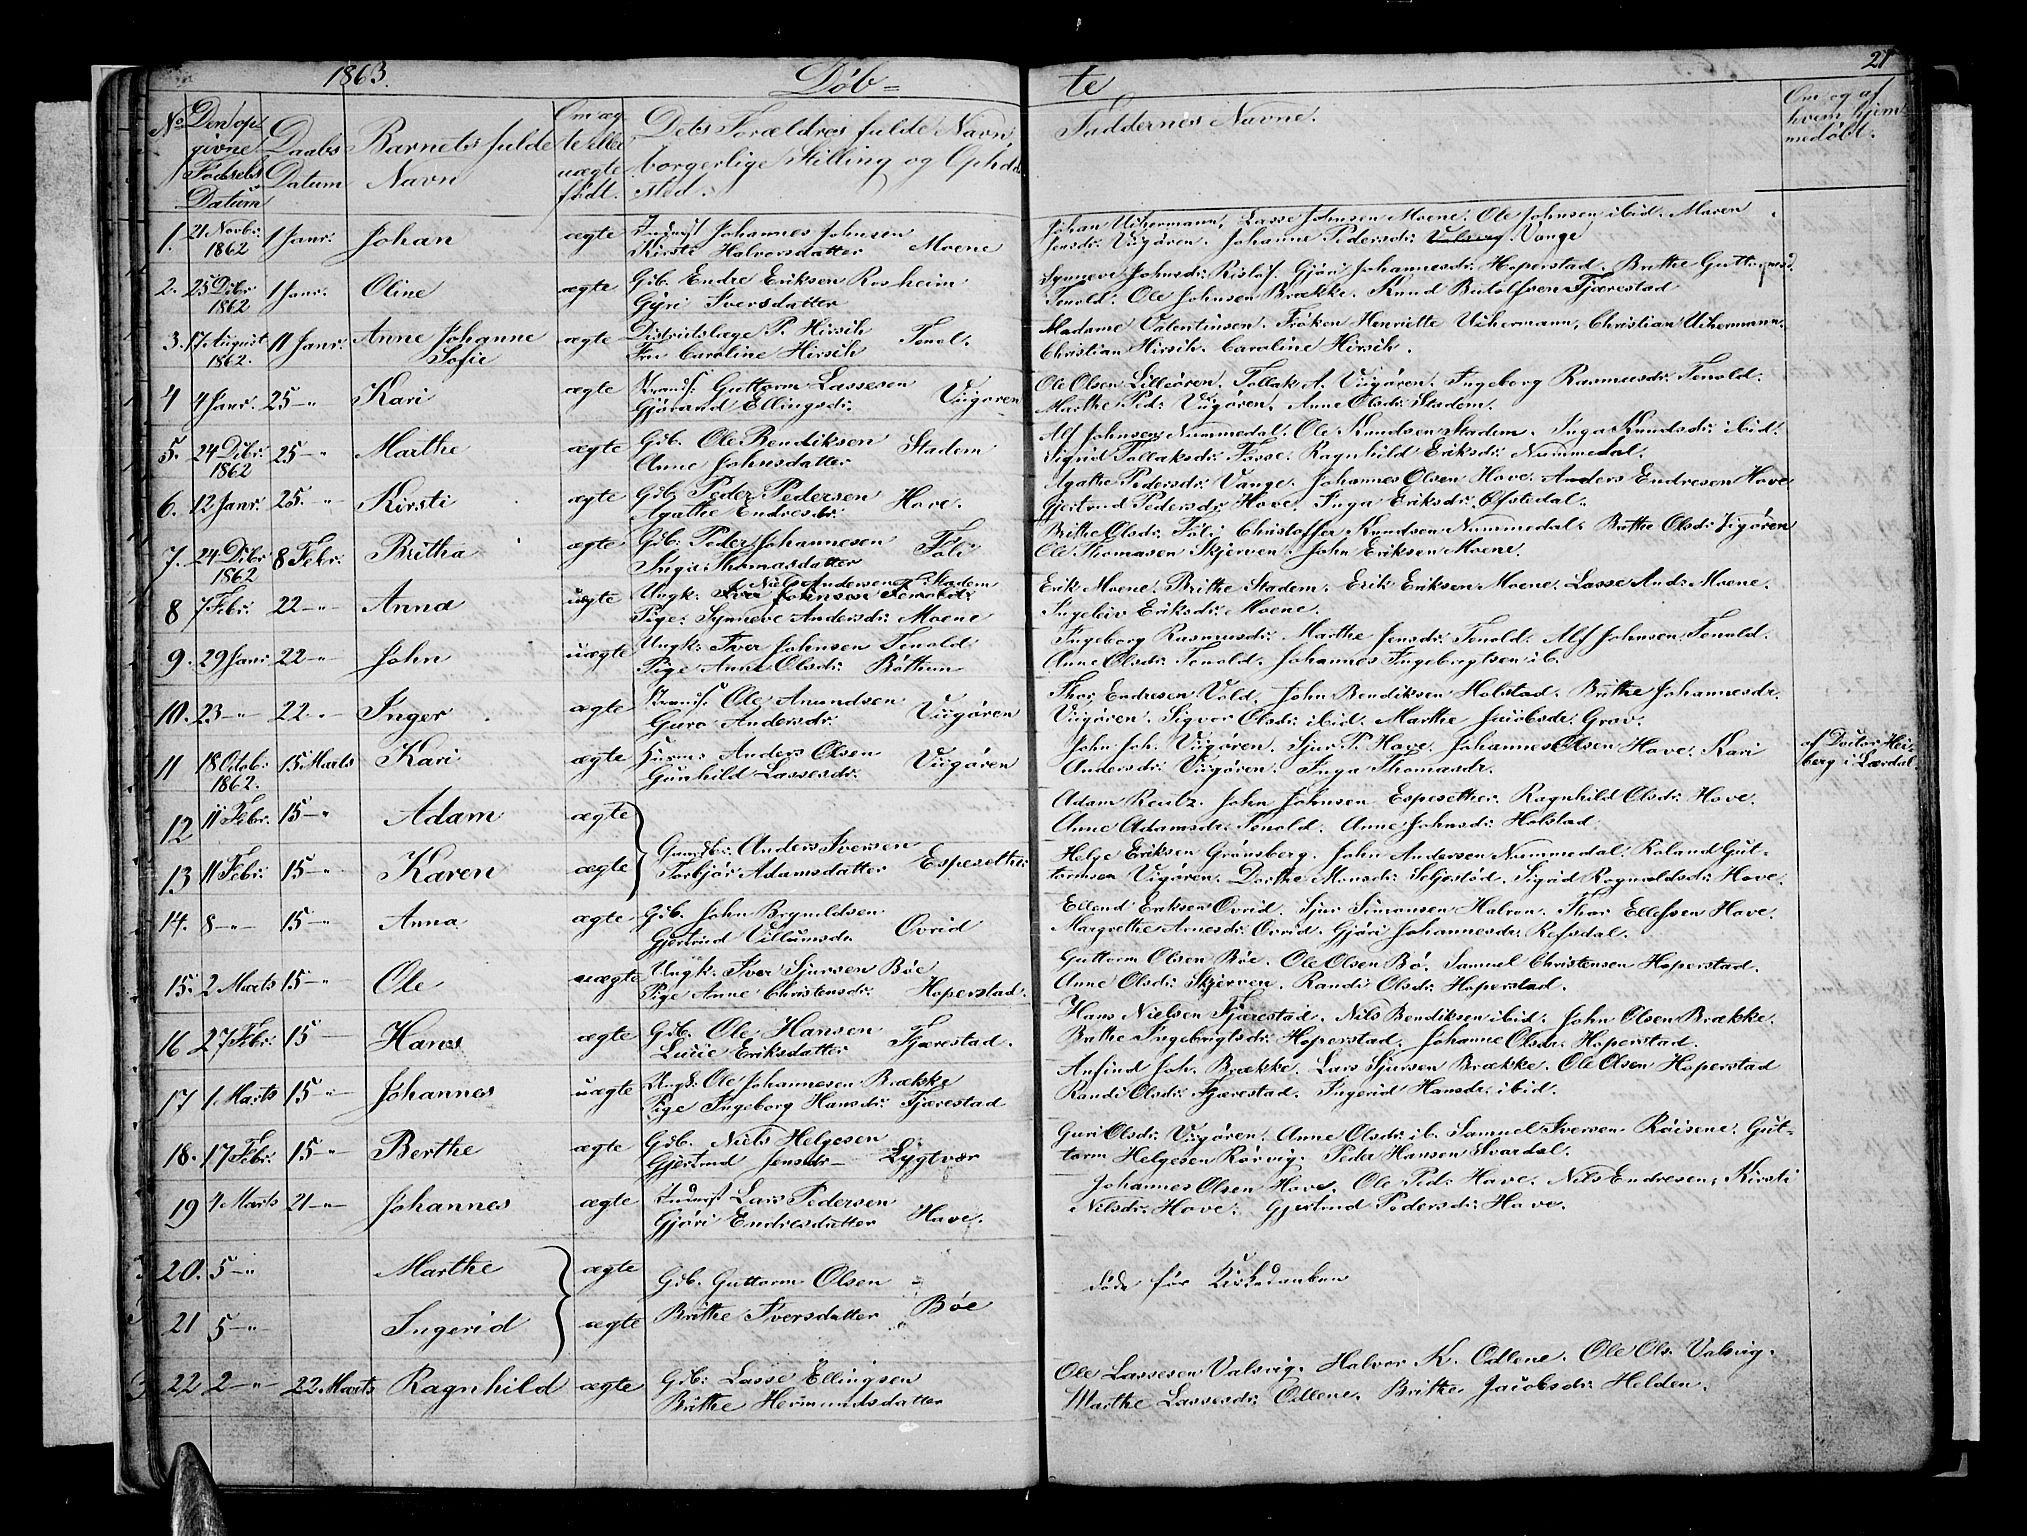 1863. Döb= te 21
No Den op-
givne
Födsels
Datum
Daabs
Datum
Barnets fulde
Navn
Om æg-
te eller
uægte
födt.
Dets Forældres fulde Navn,
borgerlige Stilling og Opholds
sted.
Faddernes Navne.
Om og af
hvem hjem-
medöbt.
1. 21 Novbr: 1862 1 Janr: Johan ægte Indrst Johannes Johnsen
Kirsti Halvorsdatter Moene
Johan Uchermann, Lasse Johnsen Moene. Ole Johnsen ibid. Maren
Jensdr: Viigören. Johanne Pedersdr: Valsvig Vange
2. 25 Dcbr 1862 1 Janr. Oline ægte Gib. Endre Eriksen Rosheim
Gjöri Iversdatter
Synneve Johnsdr: Risløf. Gjöri Johannesdr: Hoperstad. Brithe Guttormsd.
Tenold. Ole Johnsen Brække. Knud Botolfsen Fjærestad
3. 17 August 1862. 11 Janr. Anne Johanne
Sofie ægte Distriktslæge P. Hirsch
Fru Caroline Hirsch Tenol.
Madame Valentinsen. Fröken Henriette Uchermann, Christian Uchermann.
Christian Hirsch. Caroline Hirsch.
4 4 Janr. 25 -"- Kari ægte Strands: Guttorm Lassesen
Gjörand Ellingsdr: Viigören
Ole Olsen Lilleören. Tollak A. Viigören. Ingeborg Rasmusdr: Tenold.
Marthe Ped: Viigören. Anne Olsdr: Stadem.
5. 24 Dcbr: 1862 25 -"- Marthe ægte Gib. Ole Bendiksen
Anne Johnsdatter Stadem
Alf Johnsen Nummedal. Ole Knudsen Stadem. Inga Knudsdr: ibid.
Sigrid Tollaksdr: Fosse. Ragnhild Eriksdr: Nummedal.
6. 12 Janr: 25. " Kirsti ægte Gib. Peder Pedersen
Agathe Endresdr. Hove.
Agathe Pedersdr: Vange. Johannes Olsen Hove. Anders Endresen Hove
Gjertrud Pedersdr: Hove. Inga Eriksdr: Øfstedal.
7. 24 Dcbr 1862 8 Febr: Britha ægte Gib. Peder Johannesen
Inga Thomasdatter Föli
Brithe Olsdr: Föli. Christoffer Knudsen Nummedal. Brithe Olsdr: Vigören
Ole Thomasen Skjerven. John Eriksen Moene.
8 7 Febr: 22 -"- Anna uægte Niels Andersen Stadem
Ungk: Iver Johnsen Tenold:
Pige: Synneve Andersdr: Moene
Erik Moene. Brithe Stadem. Erik Eriksen Moene. Lasse And: Moene.
Ingeleiv Eriksdr: Moene.
9. 29 Janr: 22 -"- John uægte Ungk: Iver Johnsen Tenold:
Pige Anne Olsdr: Böttun
Ingeborg Rasmusdr: Marthe Jensdr: Tenold. Alf Johnsen Tenold.
Anne Olsdr: Tenold. Johannes Ingebrigtsen ib.
10. 23 -"- 22 -"- Inger ægte Strands: Ole Amundsen
Guro Andersdr: Viigören
Thor Endresen Vold. John Bendiksen Holstad. Brithe Johannesdr.
Viigören. Sigvor Olsdr: ibid. Marthe Jacobsdr. Grov.
11 18 Octob: 1862. 15 Marts Kari ægte Huusm: Anders Olsen
Gunhild Lassesdr: Viigören
John Joh. Viigören. Sjur P. Hove. Johannes Olsen Hove. Kari
Andersdr: Viigören. Inga Thomasdr.
af Doctor Hei-
berg i Lærdal.
12 11 Febr: 15 -"- Adam ægte
Adam Reutz. John Johnsen Espesether. Ragnhild Olsdr: Hove.
Anne Adamsdr: Tenold. Anne Johnsdr: Holstad.
13 11 Febr: 15 -"- Karen ægte Gaardbr: Anders Iversen
Torbjör Adamsdatter Espesether
Helge Eriksen Grönsberg. John Andersen Nummedal. Roland Gut-
tormsen Vigören. Dorthe Monsdr: Seljestöd. Sigrid Rognaldsdr: Hove.
14. 8 -"- 15 -"- Anna ægte Gib. John Brynildsen
Gjertrud Villumsdr. Ovrid
Erlend Eriksen Ovrid. Sjur Simonsen Halron. Thor Ellefsen Hove.
Margrethe Arnesdr: Ovrid. Gjöri Johannesdr: Refsdal.
15. 2 Marts 15 -"- Ole uægte Ungk: Iver Sjursen Böe
Pige Anne Christensdr: Hoperstad.
Guttorm Olsen Böe. Ole Olsen Bö. Samuel Christensen Hoperstad.
Anne Olsdr: Skjerven. Randi Olsdr: Hoperstad.
16 27 Febr: 15 - Hans ægte Gib. Ole Hansen
Lucie Eriksdatter Fjærestad.
Hans Nielsen Fjærestad. Nils Bendiksen ibid: John Olsen Brække.
Brithe Ingebrigtsdr: Hoperstad. Johanne Olsdr. Hoperstad.
17 1 Marts 15 -"- Johannes uægte Ungk: Ole Johannesen Brække
Pige Ingeborg Hansdr: Fjærestad
Anfind Joh. Brække. Lars Sjursen Brække. Ole Olsen Hoperstad
Randi Olsdr: Fjærestad. Ingerid Hansdr. ibid.
18. 17 Febr: 15 -"- Berthe ægte Gib. Niels Helgesen
Gjertrud Jensdr- Lygtvær
Guri Olsdr: Viigören. Anne Olsdr: ib. Samuel Iversen Röisene. Gut-
torm Helgesen Rörvig. Peder Hansen Svardal.
19 4 Marts 21 -"- Johannes ægte Indrst Lars Pedersen
Gjöri Endresdatter Hove.
Johannes Olsen Hove. Ole Ped: Hove. Nils Endresen, Kirsti
Nilsdr: Hove. Gjertrud Pedersdr: Hove.
20. 5 -"- Marthe ægte Gib. Guttorm Olsen
döde för Kirkedaaben
21 5 -"- Ingerid ægte Brithe Iversdatter Böe
22 2 -"- 22 Marts Ragnhild ægte Gib: Lasse Ellingsen
Brithe Hermundsdatter
Ole Lassesen Valsvig. Halvor K. Odlene. Ole Ols: Valsvig.
Marthe Lassesdr: Odlene. Brithe Jacobsdr: Helden.